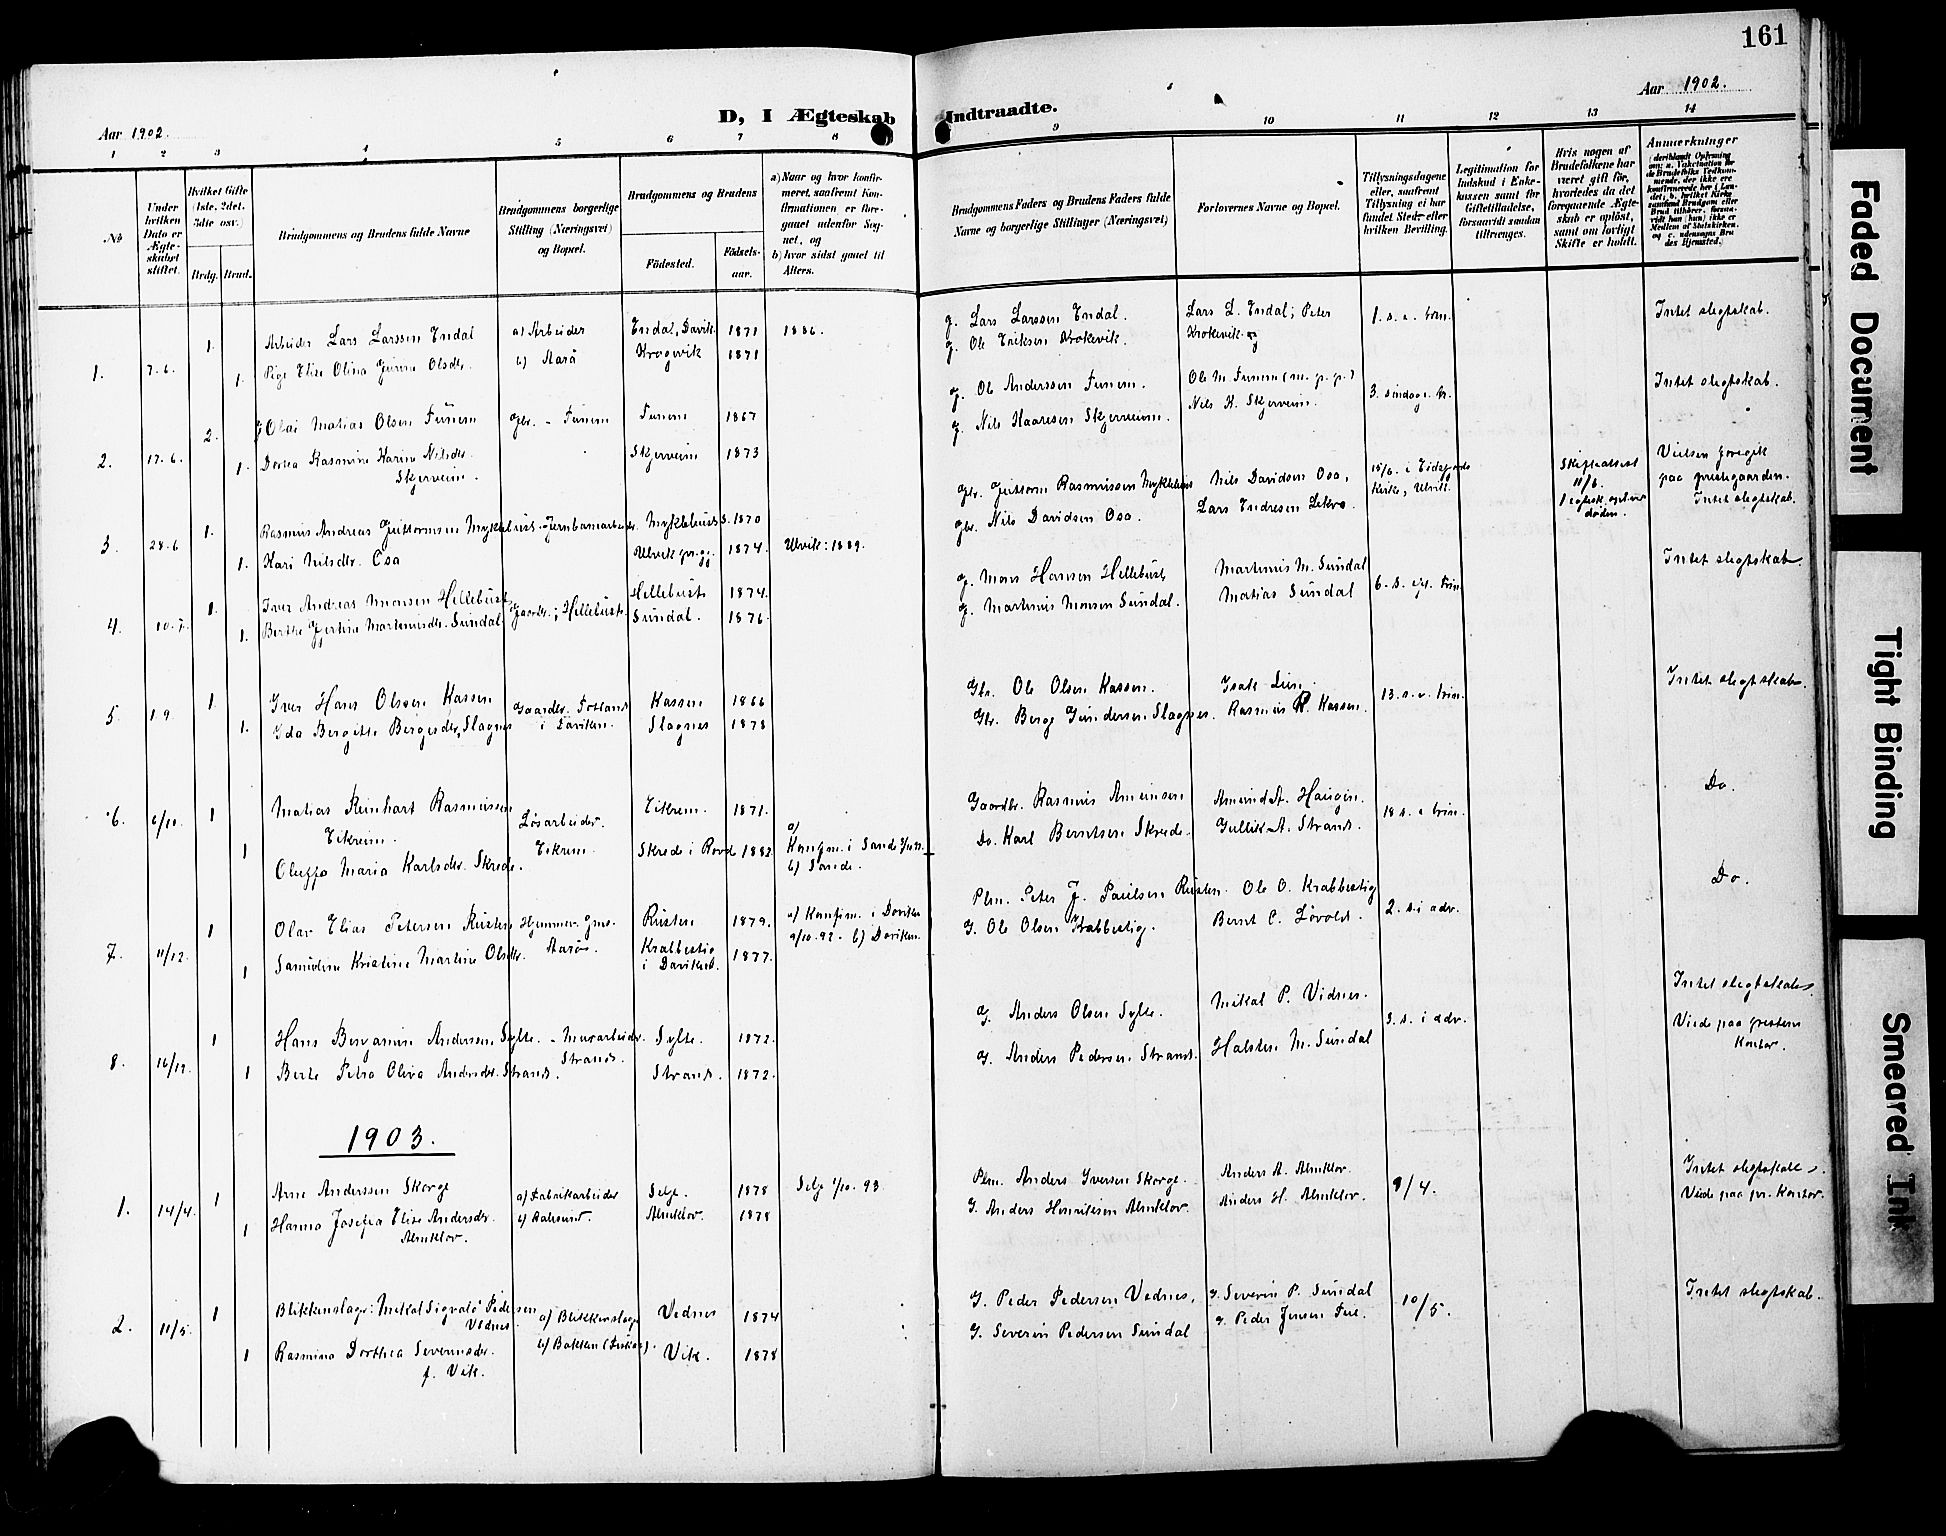 161
Aar 1902.
Aar 1902.
D, I Ægteskab Indtraadte.
1 2 3 4 5 6 7 8 9 10 11 12 13 14
No
Under hvilken Dato er Ægteskabet stiftet.
Hvilket Gifte (1ste, 2det, 3die osv.)
Brdg. Brud.
Brudgommens og Brudens fulde Navne
Brudgommens borgerlige Stilling (Næringsvei) og Bopæl.
Brudgommens og Brudens
Födested.
Födselsaar.
a) Naar og hvor konfirmeret, saafremt Konfirmationen er foregaaet udenfor Sognet, og
b) hvor sidst gaaet til Alters.
Brudgommens Faders og Brudens Faders fulde Navne og borgerlige Stillinger (Næringsvei)
Forlovernes Navne og Bopæl.
Tillysningsdagene eller, saafremt Tillysning ei har fundet Sted, efter hvilken Bevilling.
Legitimation for Indskud i Enkekassen samt for Giftetilladelse, forsaavidt saadan tiltrænges.
Hvis nogen af Brudefolkene har været gift før, hvorledes da det foregaaende Ægteskab er opløst, samt om lovligt Skifte er holdt.
Anmærkninger
1. 7.6. 1. Arbeider Lars Larssen Endal a) Arbeider Endal, Davik 1871 1886. g. Lars Larssen Endal. Lars L. Endal; Peter 1. s. e. trin. Intet slegtskab.
1. Pige Elise Olina Olsdtr. b) Aarö Krogevik 1871 g. Ole Eriksen Krokevik. Krokevik
2. 17.6. 2. Olai Matias Olsen Furiem Gbr. - Furiem Furiem 1867 g. Ole Anderssen Furiem. Ole M. Furiem (m. p. p.) 3. sindag e. tr. Intet slegtskab.
1. Dortea Rasmine Karine Nilsdtr. Skjerveim. Skjerveim 1873 g. Nils Kaaresen Skjerveim. Nils K. Skjerveim.
3. 28.6 1. Rasmus Andreas Guttormsen Myklebust - Jernbanearbeider. Myklebust 1870 Gbr. Guttorm Rasmussen Myklebust Nils Davidsen Osa, 15/6. i Eidsfjords Kirke, Ulvik. Skifteattest 11/6. 1 egtesk. opl. ved døden. Vielsen foregik paa prestegaarden. Intet slegtskab.
1. Kari Nilsdtr. Osa Ulvik 1874. Ulvik: 1889. Gbr. Nils Davidsen Osa. Lars Endresen Lekve.
4. 10.7. 1. Iver Andreas Monsen Hellebust Gaardbr.; Hellebust. Hellebust 1874. g. Mons Hansen Hellebust Martinus M. Sundal 6. s. eft. trin Intet slegtskab.
1. Berthe Martinusdtr. Sundal Sundal. 1876. g. Martinus Monsen Sundal. Matias Sundal
5. 1.9. 1 Iver Hans Olsen Kassen Gaardbr. i Daviken. Kassen 1866 Gbr. Ole Olsen Kassen. Isak Lien. 13. s. e. trin. Intet slegtskab.
1. Ida Bergitte Bergesdtr. Slagnes Slagnes 1878 Gbr. Berge Gundersen Slagnes. Rasmus R. Kassen.
6. 6/10. 1 Matias Reinhart Rasmussen Eikreim. Løsarbeider. Eikrem. Eikrem. 1871. Gaardbr. Rasmus Amundsen Amund A. Haugen. 18 s. e. trin. Do.
1 Oluffa Maria Karlsdtr. Skrede. Skrede i Rovd 1882. a) Konfm. i Sande b) Sande. Do. Karl Berntsen Skrede. Gullik A. Strand.
7. 11/12. 1 Olav Elias Petersen Rusten Aarö. Rusten 1879. a) Konfirm. i Daviken 9/10.92. b) Daviken. Plm. Peter J. Paulsen Rusten. Ole O. Krabbestig 2. s. i adv. Do.
1 Samueline Kristine Martine Olsdtr. Krabbestig i Daviken. 1877. G. Ole Olsen Krabbestig. Bernt C. Løvold.
8. 16/12. 1 Hans Benjamin Anderssen Sylte. - Murarbeider. Strand. Sylte. 1872. G. Anders Olsen Sylte. Mikal P. Vidnes. 3. s. i adv. Intet slegtskab.
1 Berte Petra Oliva Andersdtr. Strand. Strand. 1872. G. Anders Pedersen Strand. Halsten M. Sundal Viede paa prestens Kontor.
1903.
1. 14/4. 1 Arne Anderssen Skorge a) Fabrikarbeider Selje. 1878 Selje 1/10.93 Plm. Anders Iversen Skorge. Anders A. Almklov. 9/4. Intet slegtskab.
1 Hanna Josefa Elise Andersdtr. Almklov. b) Aalesund. Almklov. 1878 G. Anders Henriksen Almklov. Anders H. Almklov. Viede paa pr. Kontor.
2. 11/5. 1 Blikkenslager: Mikal Sigvald Pedersen Vidnes a) Blikkenslager Vednes 1874 G. Peder Pedersen Vednes. g. Severin P. Sundal 10/5. Intet slegtskab.
1 Rasmina Dorthea Severinsdtr. f. Vik. b) Bakken Vik. 1878 G. Severin Pedersen Sundal g. Peder Jensen
Faded Document
Tight Binding
Smeared Ink